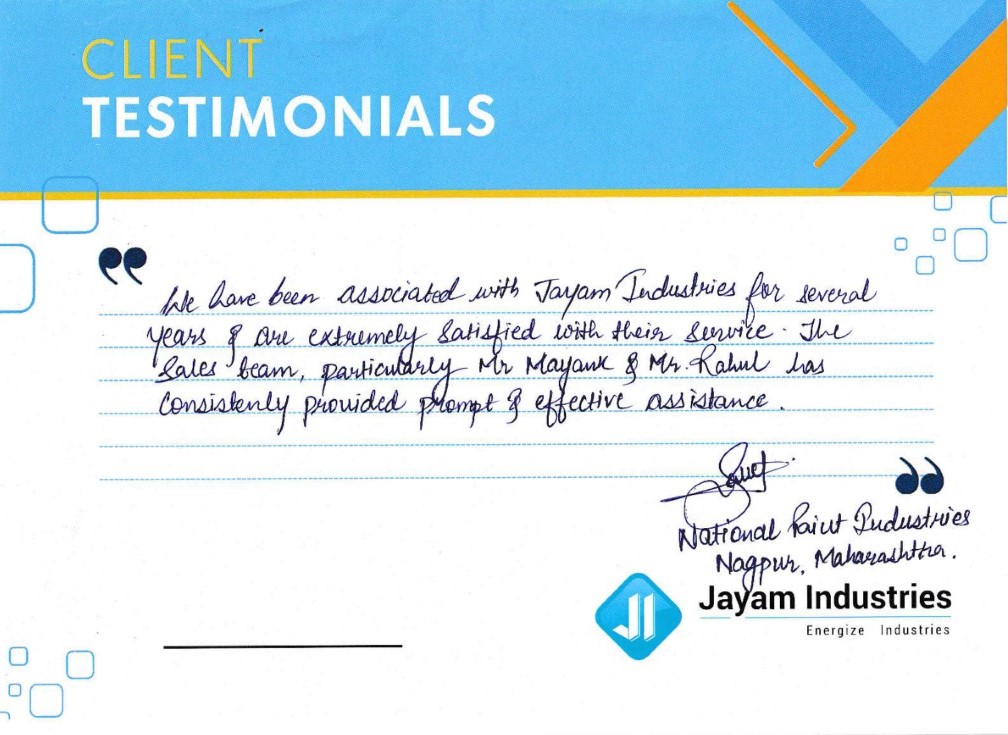 CLIENT
TESTIMONIALS
We have been associated with Jayam Industries for several
years & are extremely satisfied with their service. The
Sales team, particularly Mr Mayank & Mr. Rahul has
Consistenly provided prompt & effective assistance.
National Paint Industries
Nagpur, Maharashtra.
JI
Jayam Industries
Energize Industries